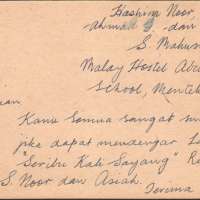 Hashim Noor
Ahmad S. dan
S. Mahus
Malay Hostel Abd
School, Mentak
uan
Kami semua sangat su
jike dapat mendengar La
"Seribu Kali Sayang" Re
S. Noor dan Asiah.
Terima